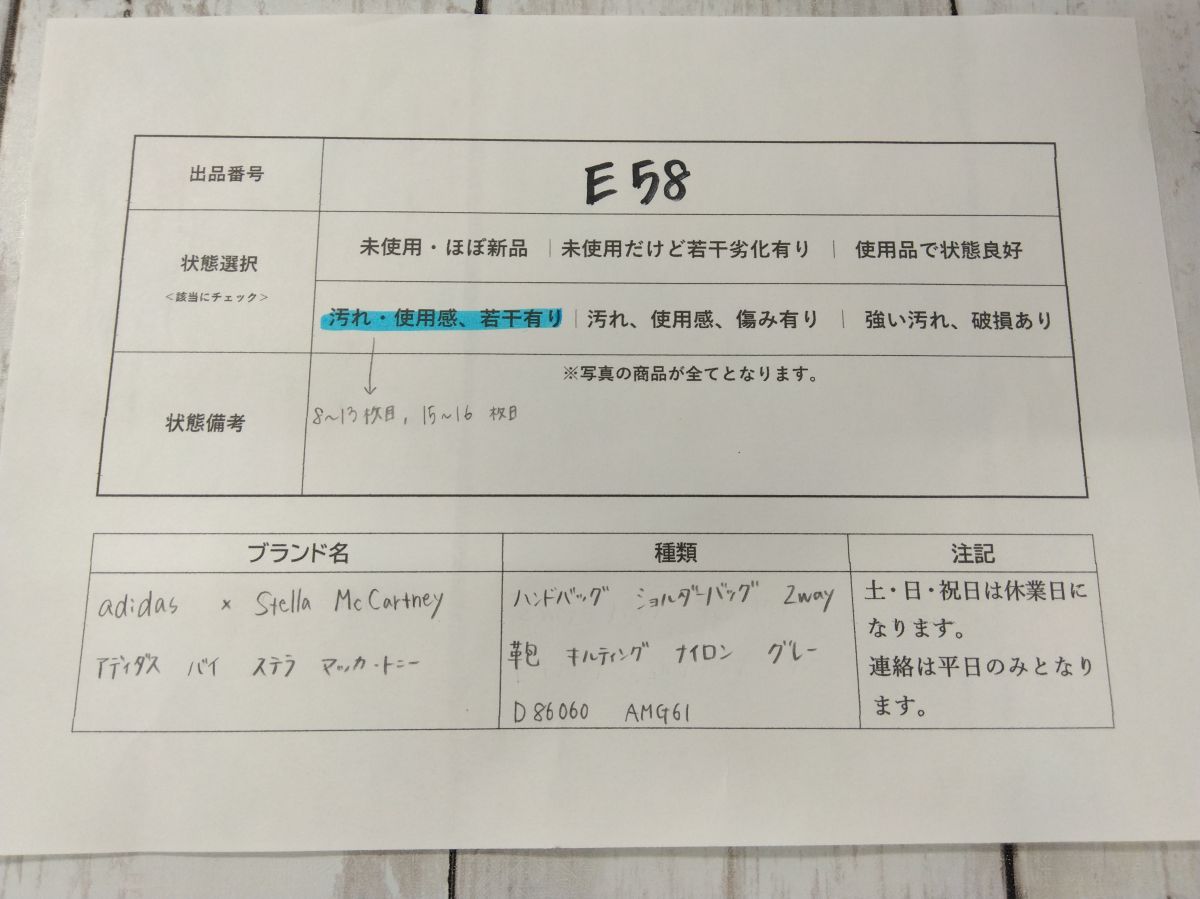 出品番号
E58
状態選択
<該当にチェック>
未使用・ほぼ新品 | 未使用だけど若干劣化有り | 使用品で状態良好
汚れ・使用感、若干有り | 汚れ、使用感、傷み有り | 強い汚れ、破損あり
状態備考
※写真の商品が全てとなります。
8~13枚目, 15~16 枚目
ブランド名
adidas × Stella McCartney
アディダス バイ ステラ マッカートニー
種類
ハンドバッグ ショルダーバッグ 2way
鞄 キルティング ナイロン グレー
D86060 AMG61
注記
土・日・祝日は休業日に
なります。
連絡は平日のみとなり
ます。